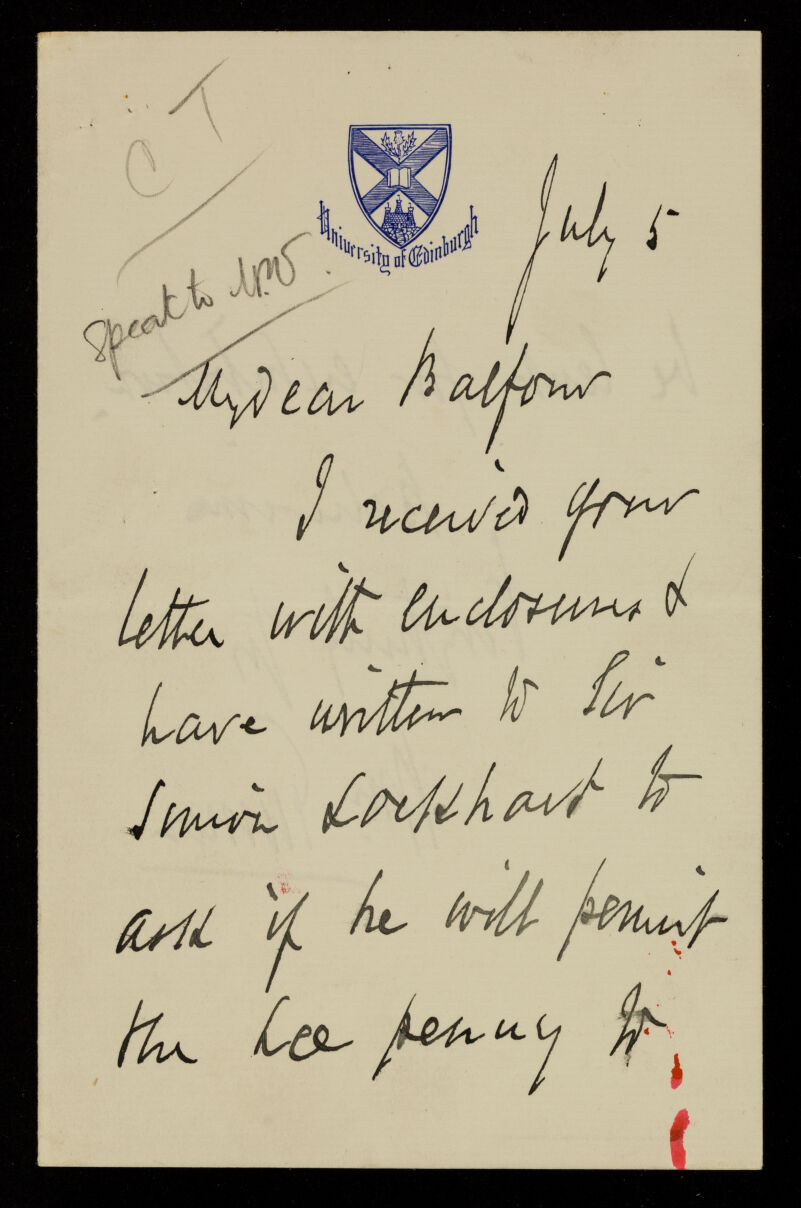 C T
University of Edinburgh
July 5
speak to
My Dear Balfour
I received your
letter with enclosures &
have written to Sir
Simon Lockhart to
ask if he will permit
the Lee penny to